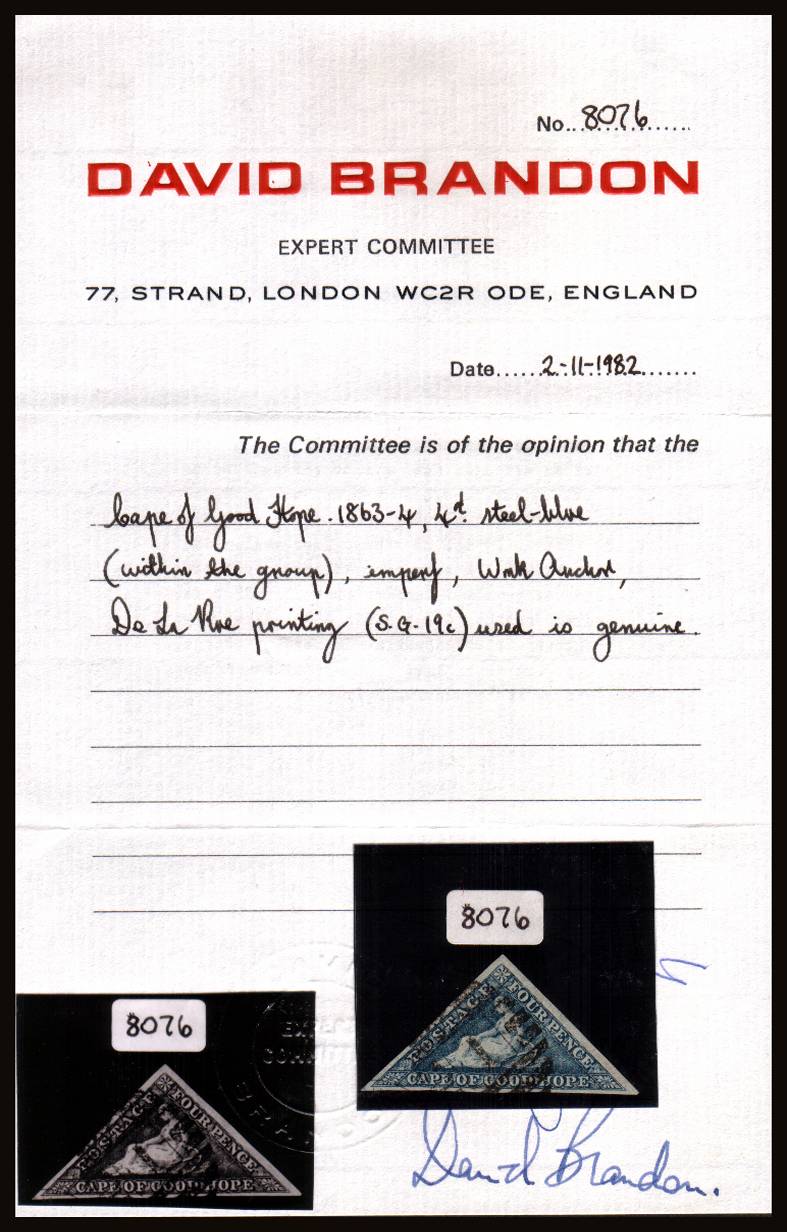 No..8076......
DAVID BRANDON
EXPERT COMMITTEE
77, STRAND, LONDON WC2R ODE, ENGLAND
Date......2-11-1982.......
The Committee is of the opinion that the
Cape of Good Hope. 1863-4, 4d. steel-blue
(within the group), imperf, Wmk Anchor,
De La Rue printing (S.G.19c) used is genuine.
8076
POSTAGE
FOURPENCE
CAPE OF GOOD HOPE
8076
POSTAGE
FOURPENCE
CAPE OF GOOD HOPE
David Brandon.